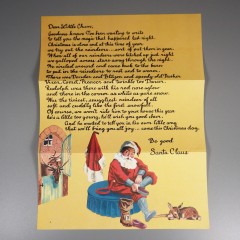 Dear Little Chum,
Goodness knows I've been waiting to write
to tell you the magic that happened last night.
Christmas is close and at this time of year
we try out the reindeers... and put them in gear.
When all of our reindeers were hitched up for night
we galloped across stars along through the night.
We circled around and came back to the barn
to put in the reindeers to rest and to warm.
There was Dunder and Blitzen and speedy old Dasher
Vixen, Comet, Prancer and Twinkle Toe Dancer.
Rudolph was there with his red nose aglow
and there in the corner as white as pure snow.
Was the tiniest, smuggliest reindeer of all
soft and cuddly like the first snowfall.
Of course, we won't ride him to your house this year
he's a little too young, he'll wish you good cheer.
And he wanted to tell you in his own little way
that we'll bring you all joy ... come this Christmas day.
Be good
Santa Claus